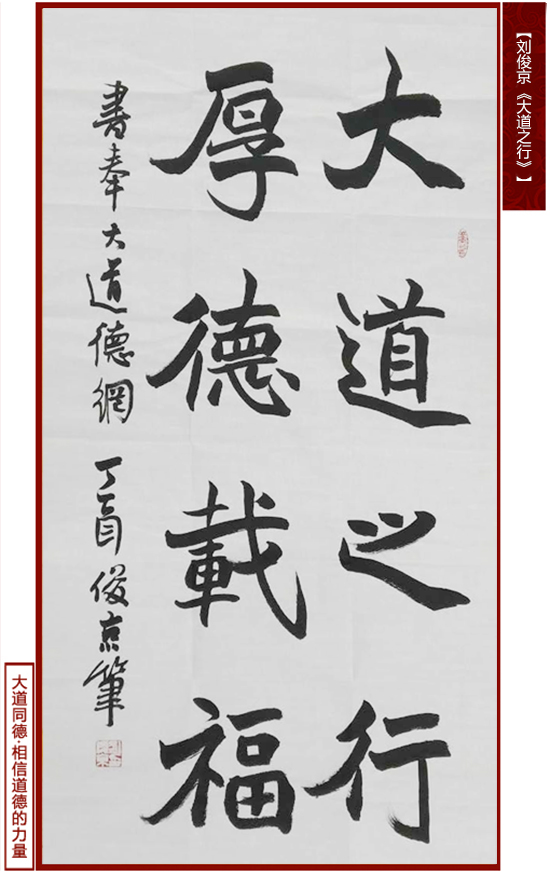 【刘俊京《大道之行》】
大道之行
厚德載福
書奉大道德網 丁酉 俊京筆
大道同德·相信道德的力量